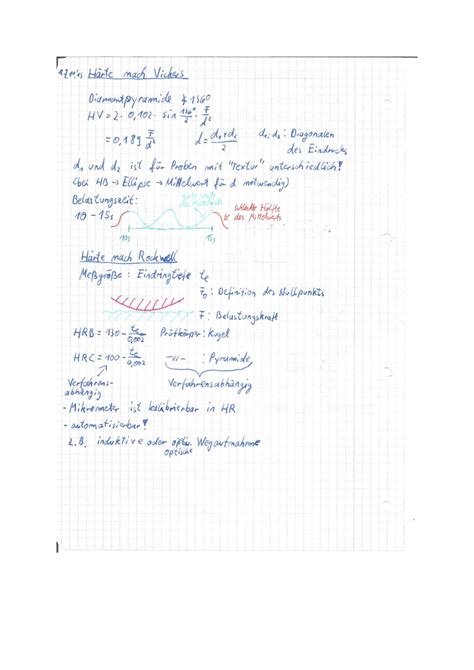 Härte nach Vickers
Diamantpyramide ∢ 136°
HV = 2 · 0,102 · sin 136°/2 · F/d²
= 0,189 F/d²    d = (d₁+d₂)/2    d₁; d₂: Diagonalen des Eindrucks
d₁ und d₂ ist für Proben mit "Textur" unterschiedlich!
(bei HB → Ellipse → Mittelwert für d notwendig)
Belastungszeit:
10 – 15s
Hälfte
des Mittelwerts
10s    15s
Härte nach Rockwell
Meßgröße: Eindringtiefe te
F₀: Definition des Nullpunkts
F: Belastungskraft
HRB = 130 - te/0,002    Prüfkörper: Kugel
HRC = 100 - te/0,002    -"-    : Pyramide
Verfahrens-
abhängig    Verfahrensabhängig
- Mikrometer ist kalibrierbar in HR
- automatisierbar!
z.B. induktive oder Wegaufnahme
optische